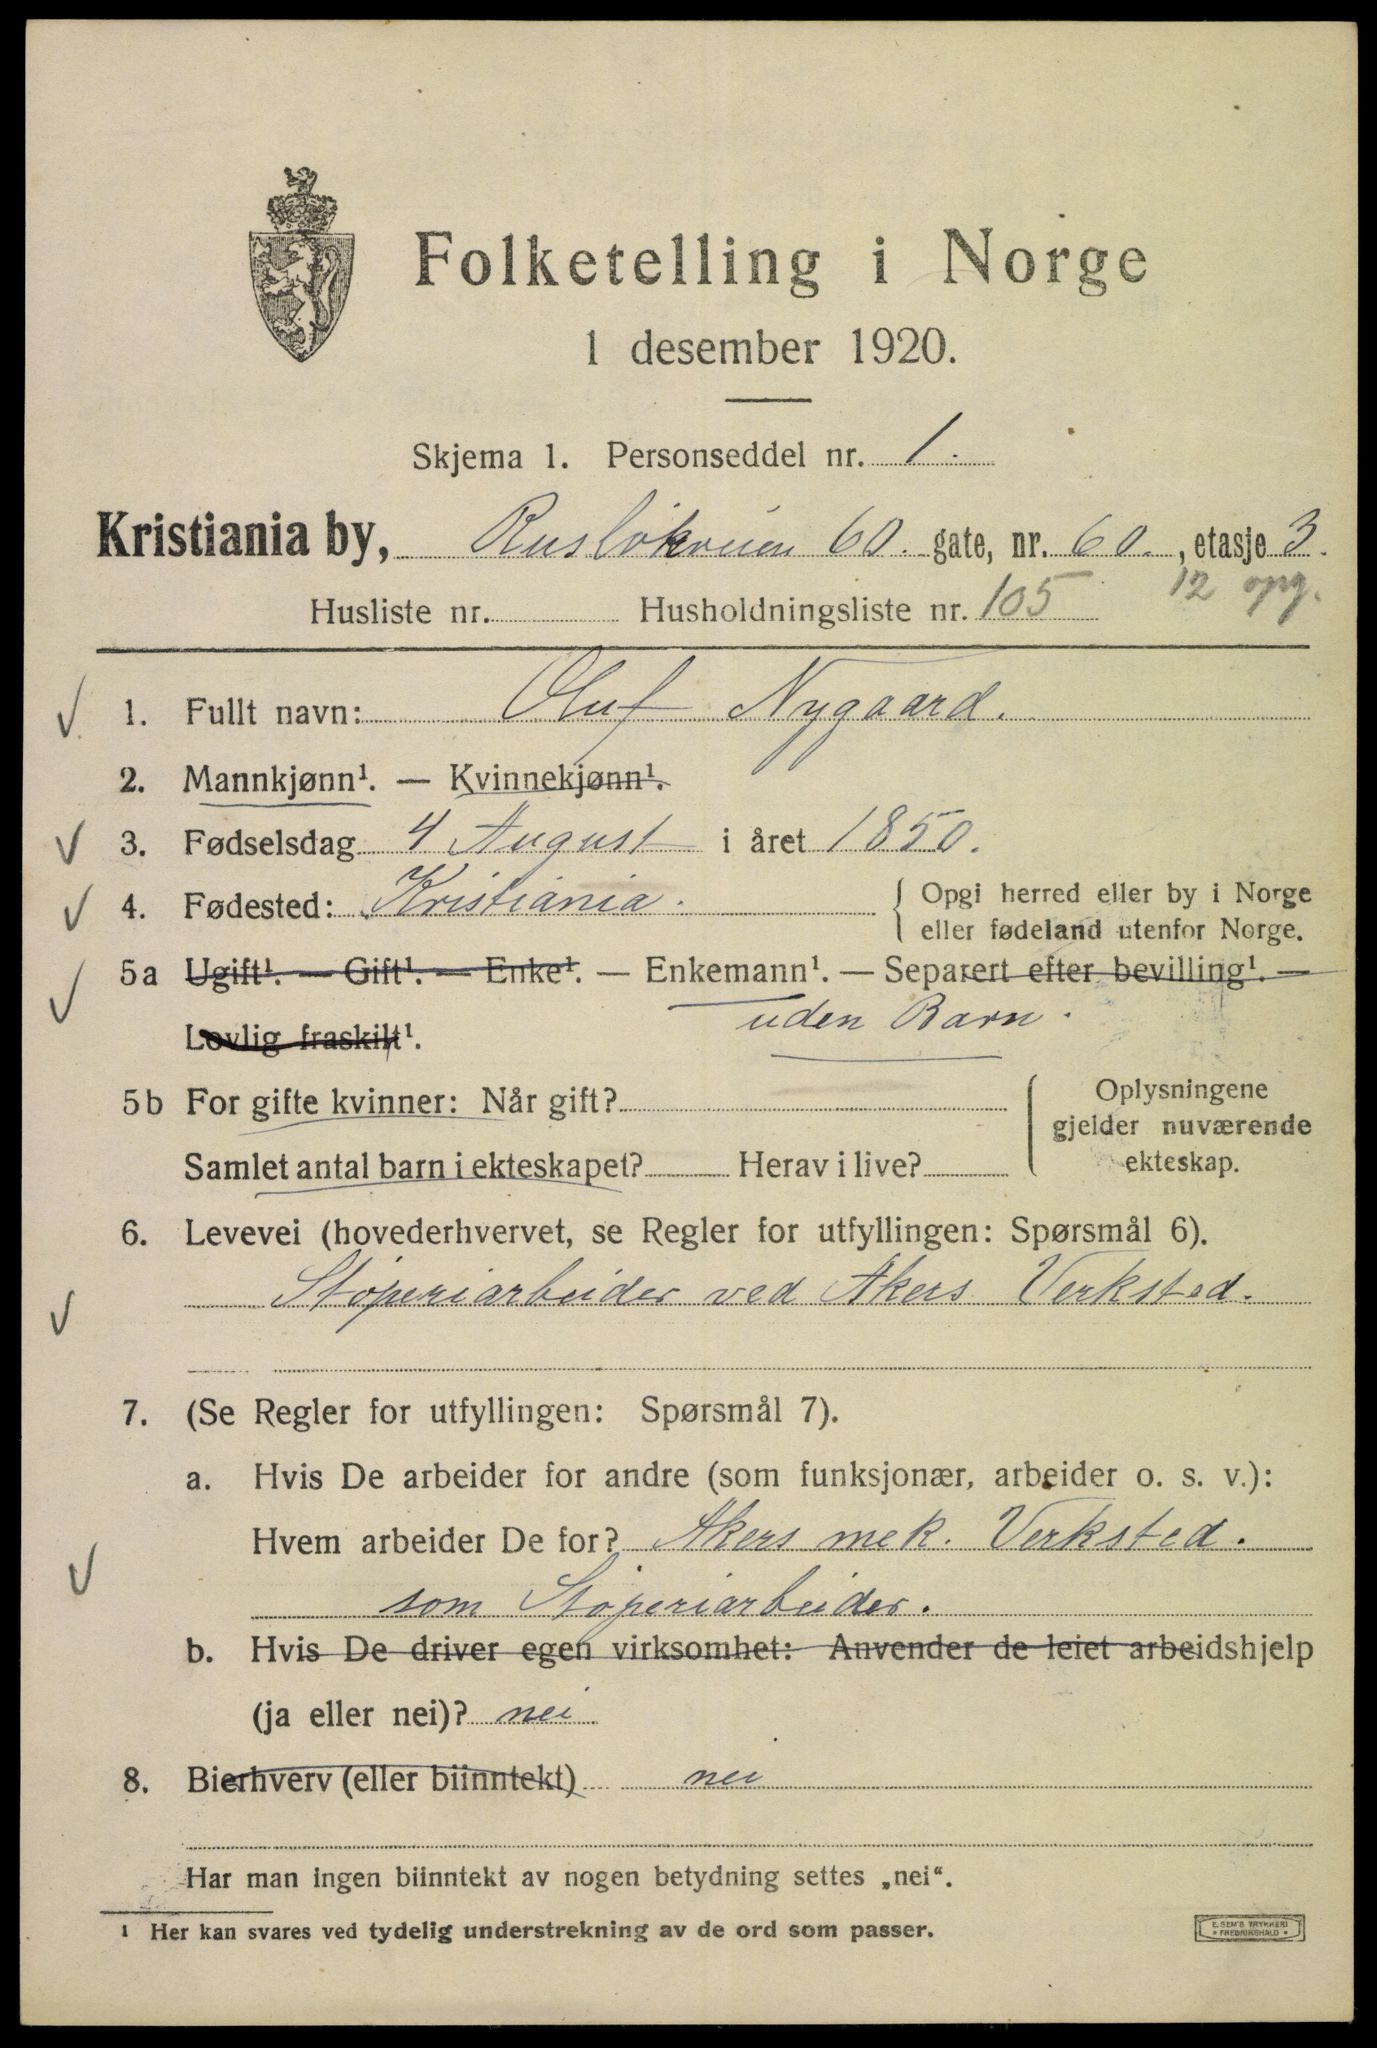 Folketelling i Norge
1 desember 1920.
Skjema 1. Personseddel nr. 1.
Kristiania by, Rusløkveien 60. gate, nr. 60., etasje 3.
Husliste nr. Husholdningsliste nr. 105 12 opg.
1. Fullt navn: Oluf Nygaard.
2. Mannkjønn¹. — Kvinnekjønn¹.
3. Fødselsdag 4 August i året 1850.
4. Fødested: Kristiania. { Opgi herred eller by i Norge
eller fødeland utenfor Norge.
5a Ugift¹. — Gift¹. — Enke¹. — Enkemann¹. — Separert efter bevilling¹. —
uden Barn.
Lovlig fraskilt¹.
5b For gifte kvinner: Når gift? { Oplysningene
gjelder nuværende
ekteskap.
Samlet antal barn i ekteskapet? Herav i live?
6. Levevei (hovederhvervet, se Regler for utfyllingen: Spørsmål 6).
Støperiarbeider ved Akers Verksted.
7. (Se Regler for utfyllingen: Spørsmål 7).
a. Hvis De arbeider for andre (som funksjonær, arbeider o. s. v.):
Hvem arbeider De for? Akers mek. Verksted.
som Støperiarbeider.
b. Hvis De driver egen virksomhet: Anvender de leiet arbeidshjelp
(ja eller nei)? nei
8. Bierhverv (eller biinntekt) nei
Har man ingen biinntekt av nogen betydning settes „nei“.
¹ Her kan svares ved tydelig understrekning av de ord som passer.
E. SEM'S TRYKKERI
* FREDRIKSHALD *